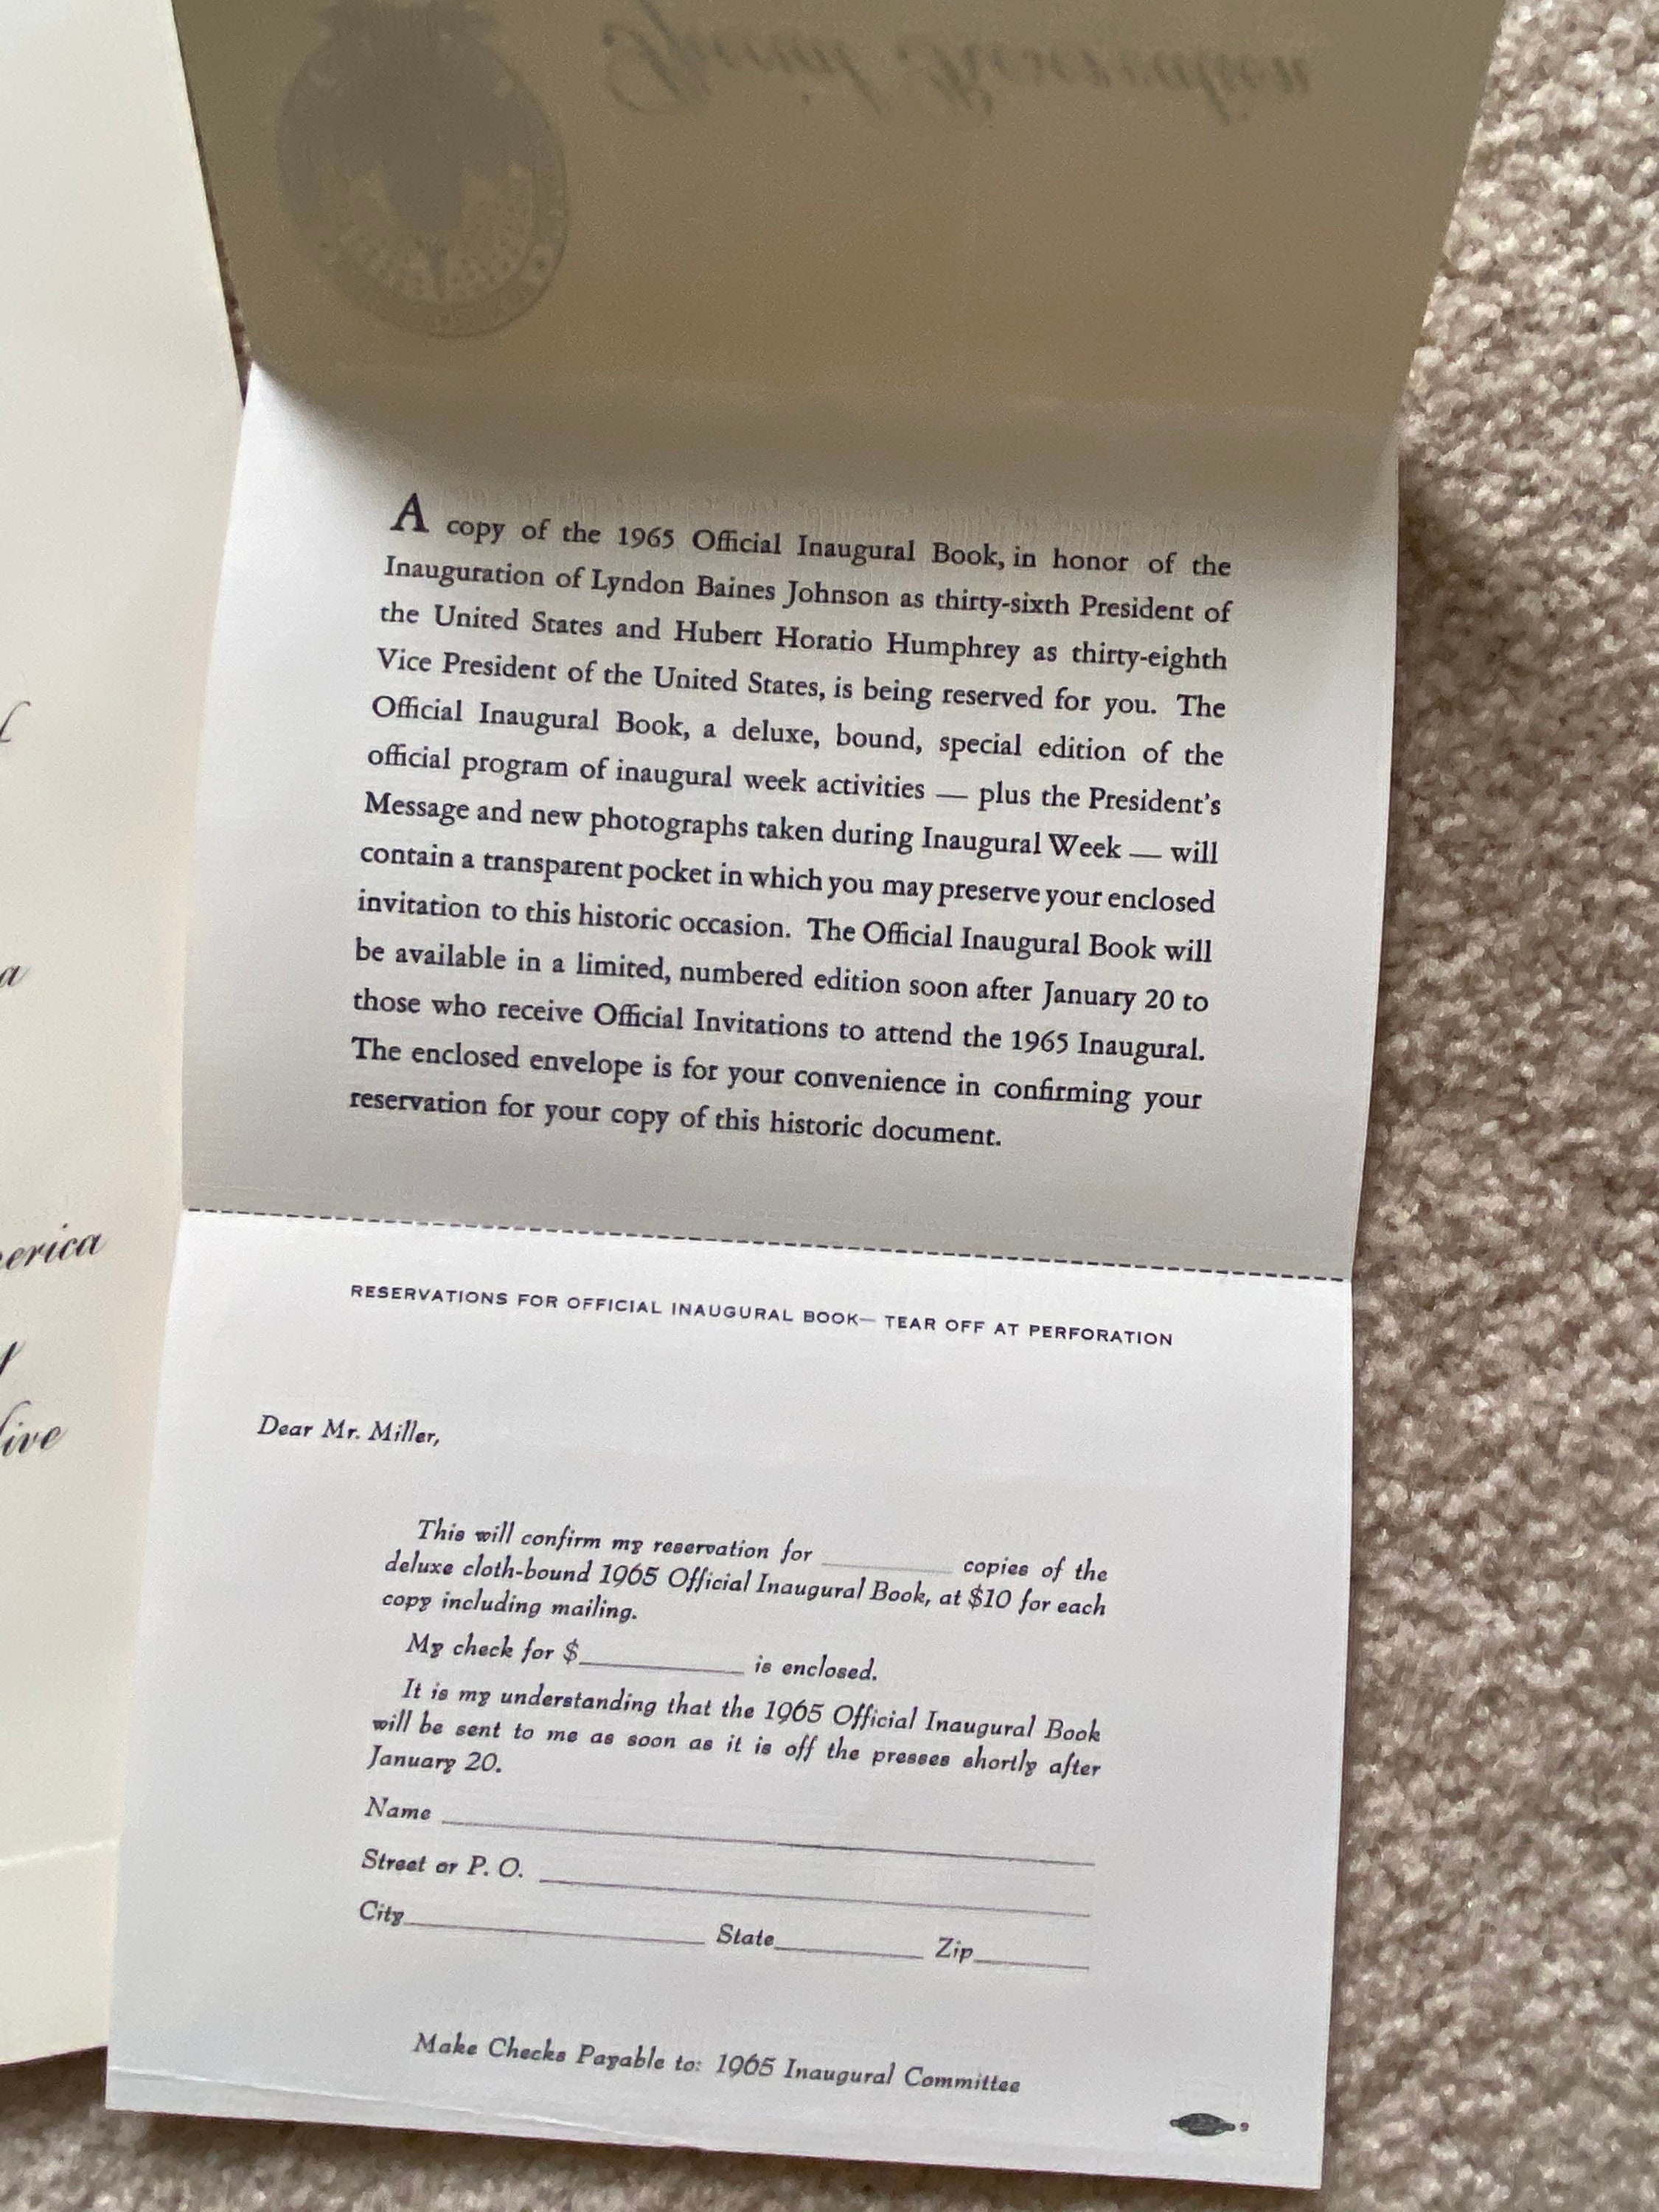 Special Reservation
A copy of the 1965 Official Inaugural Book, in honor of the
Inauguration of Lyndon Baines Johnson as thirty-sixth President of
the United States and Hubert Horatio Humphrey as thirty-eighth
Vice President of the United States, is being reserved for you. The
Official Inaugural Book, a deluxe, bound, special edition of the
official program of inaugural week activities — plus the President's
Message and new photographs taken during Inaugural Week — will
contain a transparent pocket in which you may preserve your enclosed
invitation to this historic occasion. The Official Inaugural Book will
be available in a limited, numbered edition soon after January 20 to
those who receive Official Invitations to attend the 1965 Inaugural.
The enclosed envelope is for your convenience in confirming your
reservation for your copy of this historic document.
RESERVATIONS FOR OFFICIAL INAUGURAL BOOK— TEAR OFF AT PERFORATION
Dear Mr. Miller,
This will confirm my reservation for ________ copies of the
deluxe cloth-bound 1965 Official Inaugural Book, at $10 for each
copy including mailing.
My check for $__________ is enclosed.
It is my understanding that the 1965 Official Inaugural Book
will be sent to me as soon as it is off the presses shortly after
January 20.
Name
Street or P. O.
City State Zip
Make Checks Payable to: 1965 Inaugural Committee